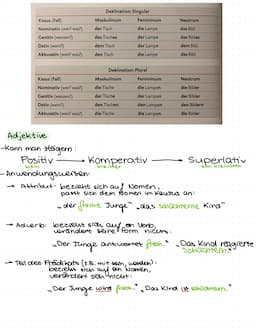 Deklination: Singular
Kasus (Fall) Maskulinum Femininum Neutrum
Nominativ (wer? was?) der Tisch die Lampe das Bild
Genitiv (wessen?) des Tisches der Lampe des Bildes
Dativ (wem?) dem Tisch der Lampe dem Bild
Akkusativ (wen? was?) den Tisch die Lampe das Bild
Deklination: Plural
Kasus (Fall) Maskulinum Femininum Neutrum
Nominativ (wer? was?) die Tische die Lampen die Bilder
Genitiv (wessen?) der Tische der Lampen der Bilder
Dativ (wem?) den Tischen den Lampen den Bildern
Akkusativ (wen? was?) die Tische die Lampen die Bilder
Adjektive
- Kann man steigern:
Positiv → Komperativ → Superlativ
klein kleiner am kleinsten
- Anwendungsweisen:
→ Attribut: bezieht sich auf Nomen,
passt sich dem Nomen in Kasus an:
„der freche Junge" „das schüchterne Kind"
→ Adverb: bezieht sich auf ein Verb,
verändert seine Form nicht:
„Der Junge antwortet frech." „Das Kind reagierte
schüchtern."
→ Teil des Prädikats (z.B. mit sein, werden):
bezieht sich auf ein Nomen,
verändert sich nicht:
„Der Junge wird frech." „Das Kind ist schüchtern."